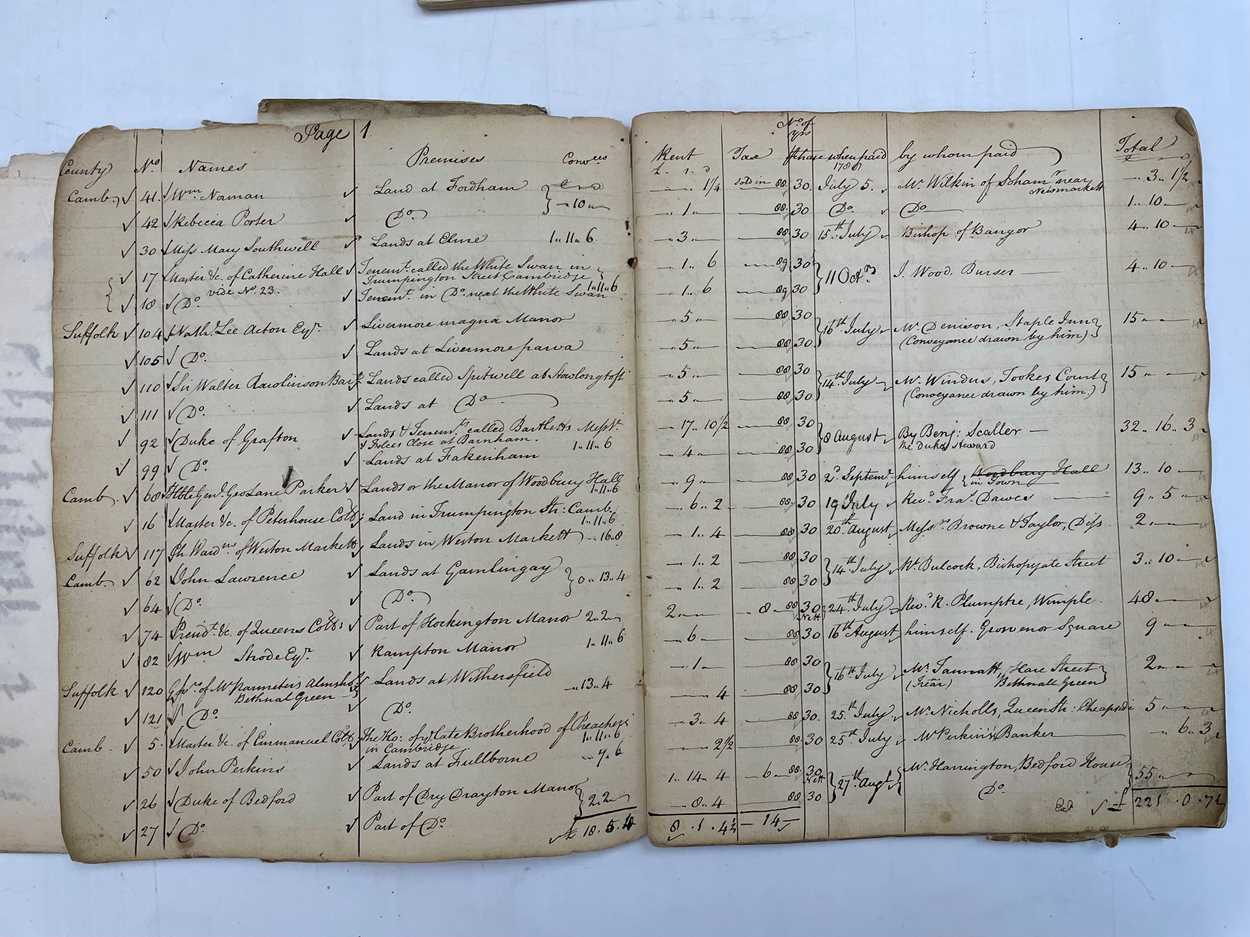 Page 1
County No Names Premises Convces
Camb. 41. Wm. Naman Land at Fordham
42 Rebecca Porter Do. — 10 —
30 Miss Mary Southwell Lands at Elme 1.. 11.. 6
17 Master &c. of Catherine Hall Tenemt. called the White Swan in
vide No. 23. Trumpington Street Cambridge 1.. 11.. 6
18 Do. Tenemt. in Do. near the White Swan
Suffolk 104 Nathl. Lee Acton Esqr. Livermore magna Manor
105 Do. Lands at Livermore parva
110 Sir Walter Rawlinson Lands called Spitwell at Stowlangtoft
111 Do. Lands at Do.
92 Duke of Grafton Lands & Tenemts. called Bartletts
Close at Barnham. 1.. 11.. 6
99 Do. Lands at Fakenham
Camb. 68 Genl. Geo Lane Parker Lands or the Manor of Woodbury Hall
1.. 11.. 6
16 Master &c. of Peterhouse Coll. Land in Trumpington Str: Camb.
1.. 11.. 6
Suffolk 117 of Weston Markett Lands in Weston Markett — 16.. 8
Camb. 62 John Lawrence Lands at Gamlingay
0.. 13.. 4
64 Do. Do.
74 Presidt. &c. of Queens Coll. Part of Hockington Manor 2.. 2..
82 Wm Strode Esqr. Rampton Manor 1.. 11.. 6
Suffolk 120 of Parmeters Almsho. Lands at Withersfield
Bethnal Green .. 13.. 4
121 Do. Do.
Camb. 5. Master &c. of Emmanuel Coll. The Ho: of ye late Brotherhood of Preachers
in Cambridge 1.. 11.. 6
50 John Perkins Lands at Fullborne — 7.. 6
26 Duke of Bedford Part of Dry Drayton Manor
2.. 2..
27 Do. Part of Do.
£ 18. 5. 4
Rent Tax No. of yrs purchase when paid by whom paid Total
1787
— 1¼ sold in 88. 30. July 5. Mr. Wilkin of Soham near — 3. 1½
Newmarkett
— 1 — 88. 30 Do. Do. 1.. 10 —
— 3 — 88 30 15th. July Bishop of Bangor 4.. 10 —
— 1.. 6 89 30 11 Octr. J. Wood. Bursar 4.. 10 —
— 1.. 6 89 30
— 5 — 88 30 16th. July Mr. Denison, Staple Inn 15 —
— 5 — 88 30 (Conveyance drawn by him)
— 5 — 88 30 14th. July Mr. Windus, Tookes Court 15 —
— 5 — 88 30 (Conveyance drawn by him.)
— 17.. 10½ 88 30 8 August By Benj: Scaller — 32.. 16.. 3
— 4 — 88 30 the Dukes Steward
— 9 — 88 30 2d. Septemr. himself Woodbury Hall 13.. 10 —
in Town
— 6.. 2 88 30 19 July Revd. Fras. Dawes 9.. 5 —
— 1.. 4 88 30 20th August Messrs. Browne & Taylor, Diss 2 —
— 1.. 2 88 30 14th. July Mr Bulcock, Bishopsgate Street 3.. 10 —
— 1.. 2 88 30
2 — — 8 — 88 30 24th. July Revd. R. Plumptre, Wimple 48 —
Nett
— 6 — 88 30 16th August himself. Grovenor Square 9 —
— 1 — 88 30 16th July Mr. Tannatt, Hare Street 2 —
— 4 88 30 Bethnall Green
— 3.. 4 88 30 25th. July Mr. Nicholls, Queen Str: Cheapside 5 —
— 2½ 88 30 25th. July Mr Perkins's Banker — 6. 3
1.. 14.. 4 — 6 — 88 30 27th. Augt. Mr. Harrington, Bedford House 55 —
Nett
— 8.. 4 88 30 Do.
8. 1. 4½ — 14 — £ 221. 0. 7½